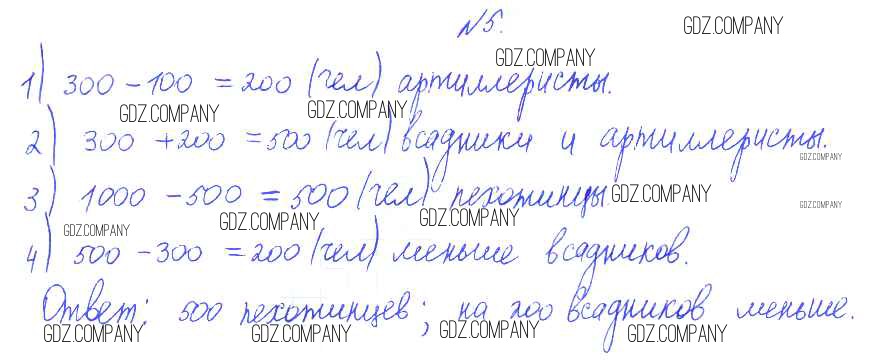 №5.
GDZ.COMPANY
GDZ.COMPANY
1) 300 - 100 = 200 (чел) артиллеристы.
GDZ.COMPANY GDZ.COMPANY
2) 300 + 200 = 500 (чел) всадники и артиллеристы.
GDZ.COMPANY
3) 1000 - 500 = 500 (чел) пехотинцы. GDZ.COMPANY
GDZ.COMPANY
GDZ.COMPANY GDZ.COMPANY GDZ.COMPANY
4) 500 - 300 = 200 (чел) меньше всадников.
Ответ: 500 пехотинцев; на 200 всадников меньше.
GDZ.COMPANY GDZ.COMPANY GDZ.COMPANY GDZ.COMPANY